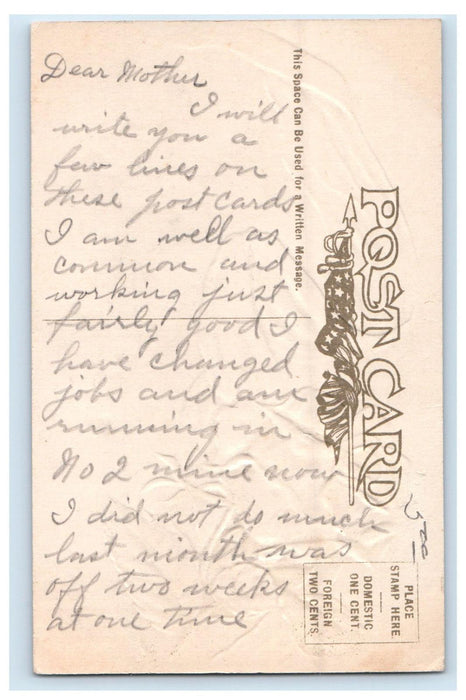 Dear Mother
I will
write you a
few lines on
these post cards
I am well as
common and
working just
fairly good I
have changed
jobs and am
running in
No 2 mine now
I did not do much
last month was
off two weeks
at one time
This Space Can Be Used for a Written Message.
POST CARD
PLACE
STAMP HERE
DOMESTIC
ONE CENT.
FOREIGN
TWO CENTS.